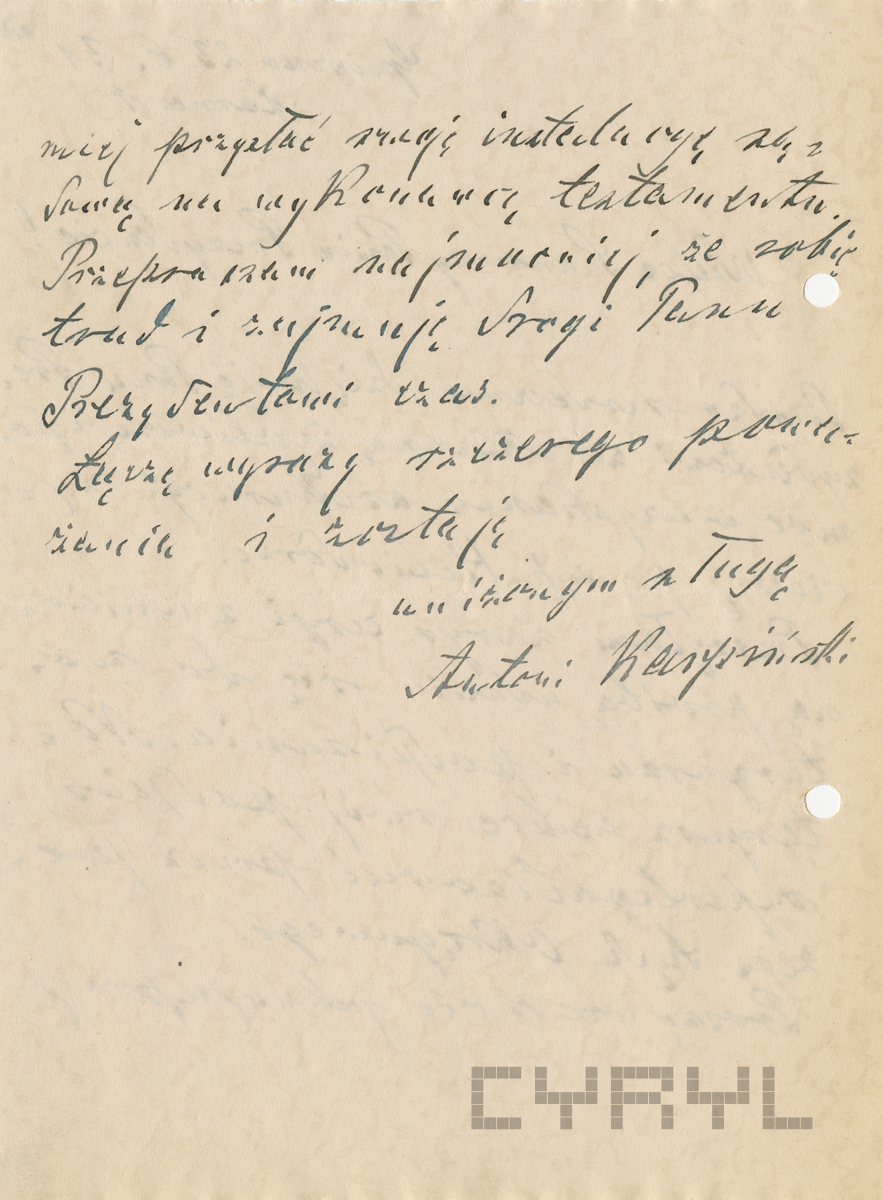 miej przysłać swoją instalacyę są-
dową na wykonawcę testamentu.
Przepraszam najmocniej, że robię
trud i zajmuję drogi Panu
Prezydentowi czas.
Łączę wyrazy szczerego powa-
żania i zostaję
uniżonym sługą
Antoni Karpiński
CYRYL